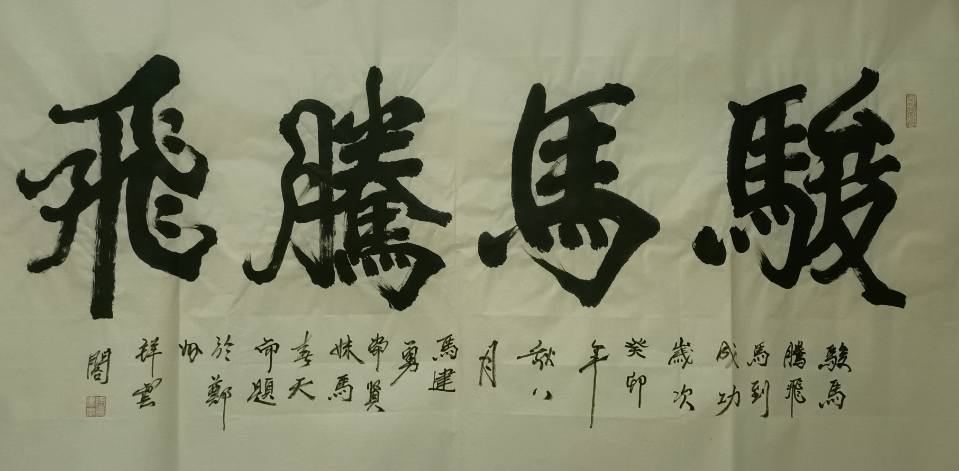 駿馬騰飛
駿馬
騰飛
馬到
成功
歲次
癸卯
年
秋八
月
馬建
勇
賢
妹馬
春天
命題
於鄭
州
祥雲
閣